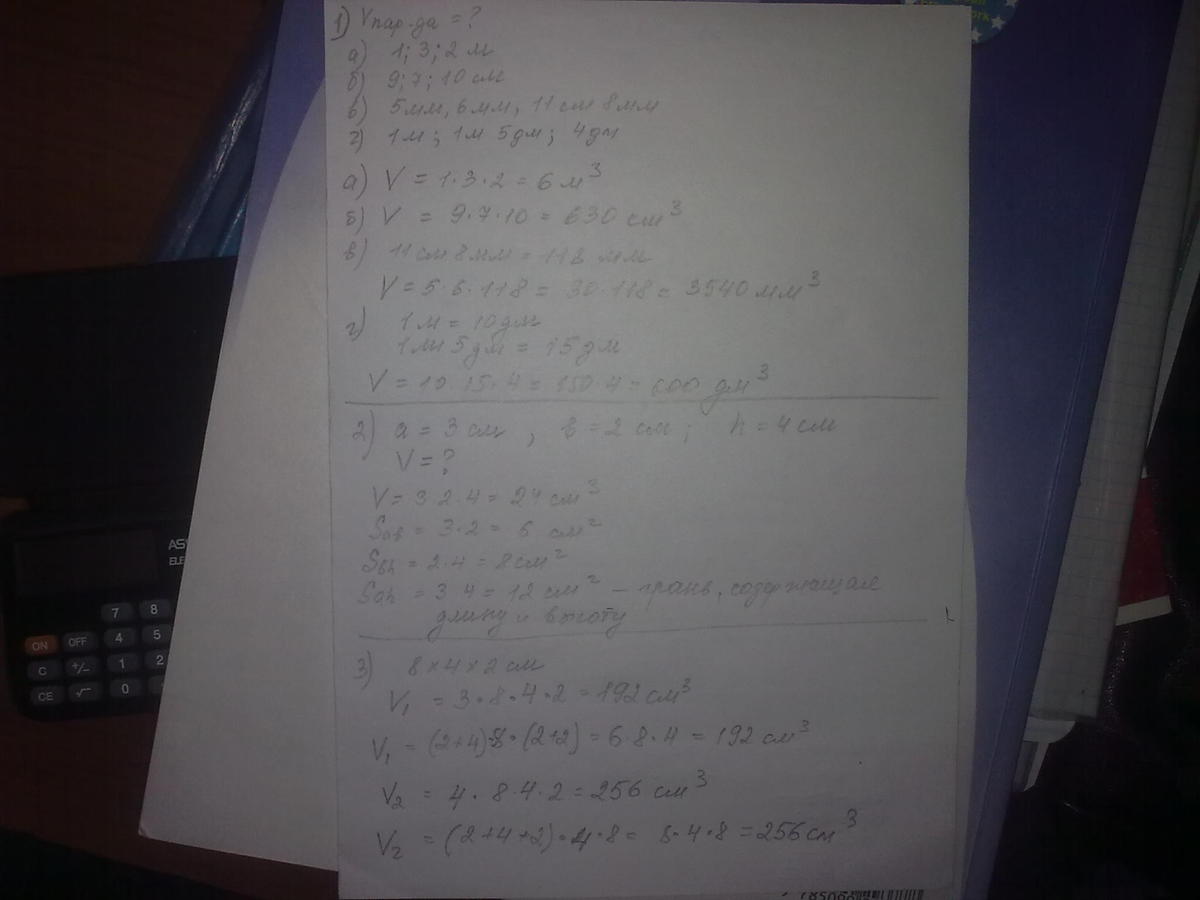 1) Vпар-да = ?
а) 1; 3; 2 м
б) 9; 7; 10 см
в) 5 мм, 6 мм, 11 см 8 мм
г) 1 м; 1 м 5 дм; 4 дм
а) V = 1·3·2 = 6 м³
б) V = 9·7·10 = 630 см³
в) 11 см 8 мм = 118 мм
V = 5·6·118 = 30·118 = 3540 мм³
г) 1 м = 10 дм
1 м 5 дм = 15 дм
V = 10·15·4 = 150·4 = 600 дм³
2) a = 3 см, в = 2 см; h = 4 см
V = ?
V = 3·2·4 = 24 см³
Sав = 3·2 = 6 см²
Sвh = 2·4 = 8 см²
Sah = 3 4 = 12 см² – грань, содержащая
длину и высоту
3) 8 × 4 × 2 см
V₁ = 3·8·4·2 = 192 см³
V₁ = (2+4)·8·(2+2) = 6·8·4 = 192 см³
V₂ = 4·8·4·2 = 256 см³
V₂ = (2+4+2)·4·8 = 8·4·8 = 256 см³
ON OFF 7 8
4 5
C +/- 1 2
CE √ 0